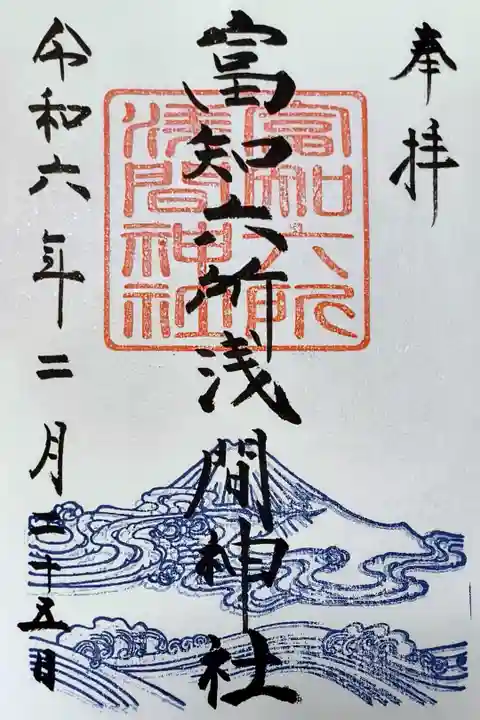 奉拝
富知六所浅間神社
富知六所
浅間神社
令和六年二月二十五日